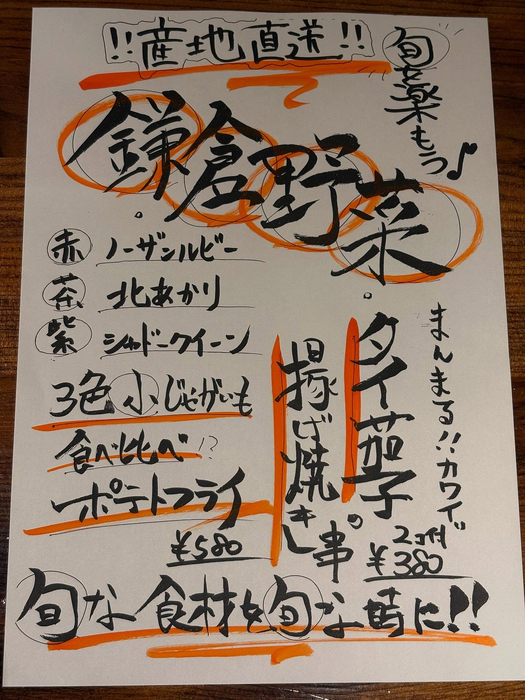 !!産地直送!!
旬を楽もう♪
鎌倉野菜
赤 ノーザンルビー
茶 北あかり
紫 シャドークイーン
3色小じゃがいも
食べ比べ!?
ポテトフライ
¥580
まんまる!!カワイイ
タイ茄子
揚げ焼きし串
2コ付
¥380
旬な食材を旬な時に!!